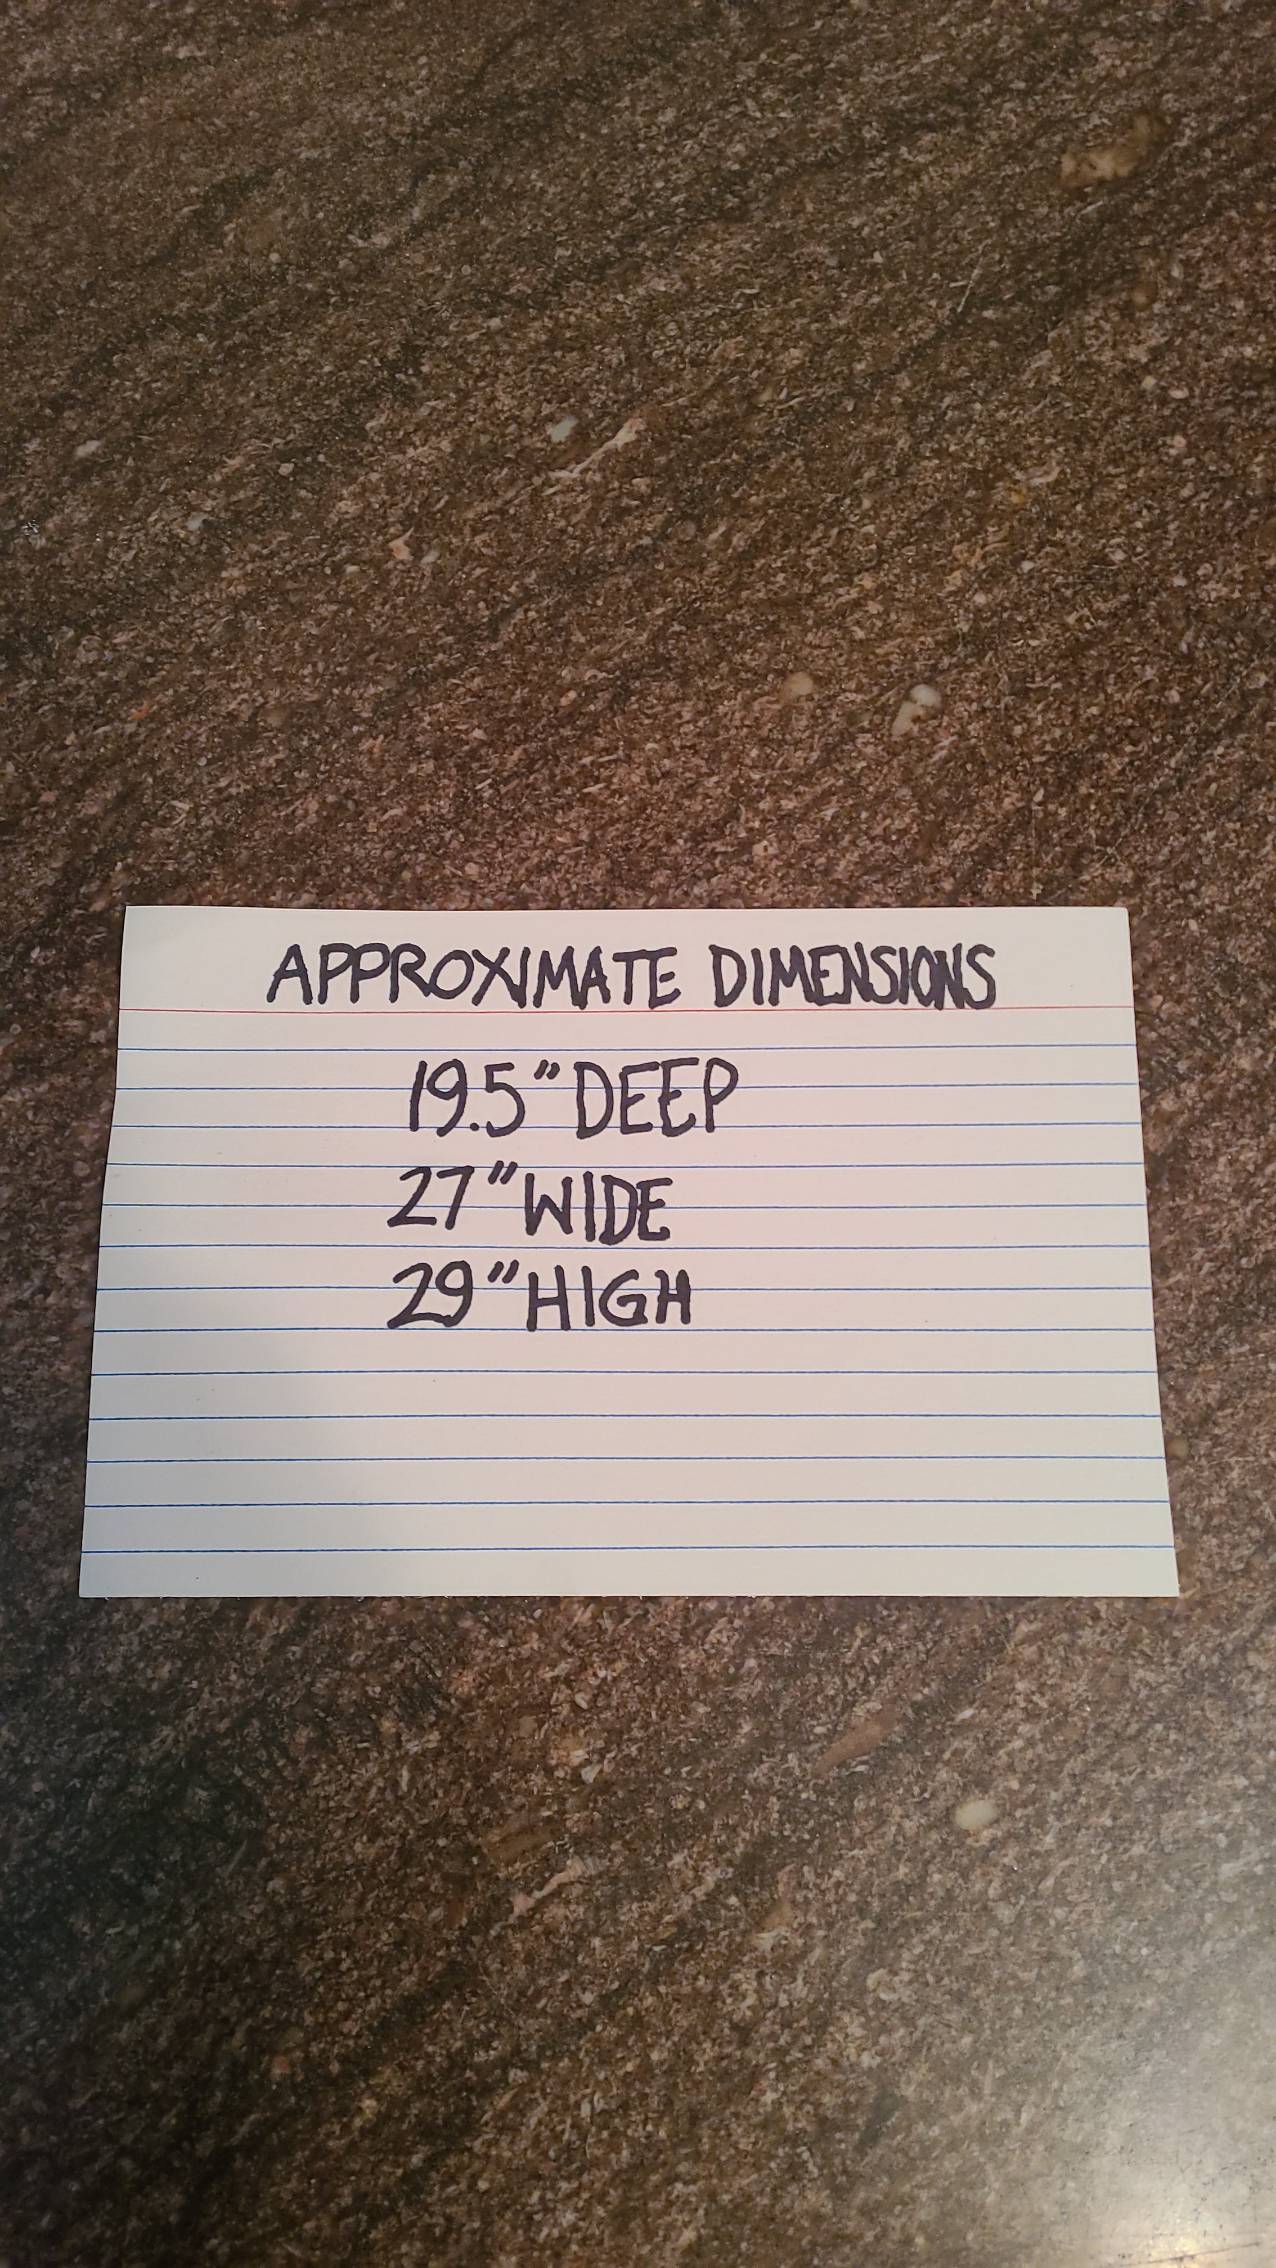 APPROXIMATE DIMENSIONS
19.5" DEEP
27" WIDE
29" HIGH